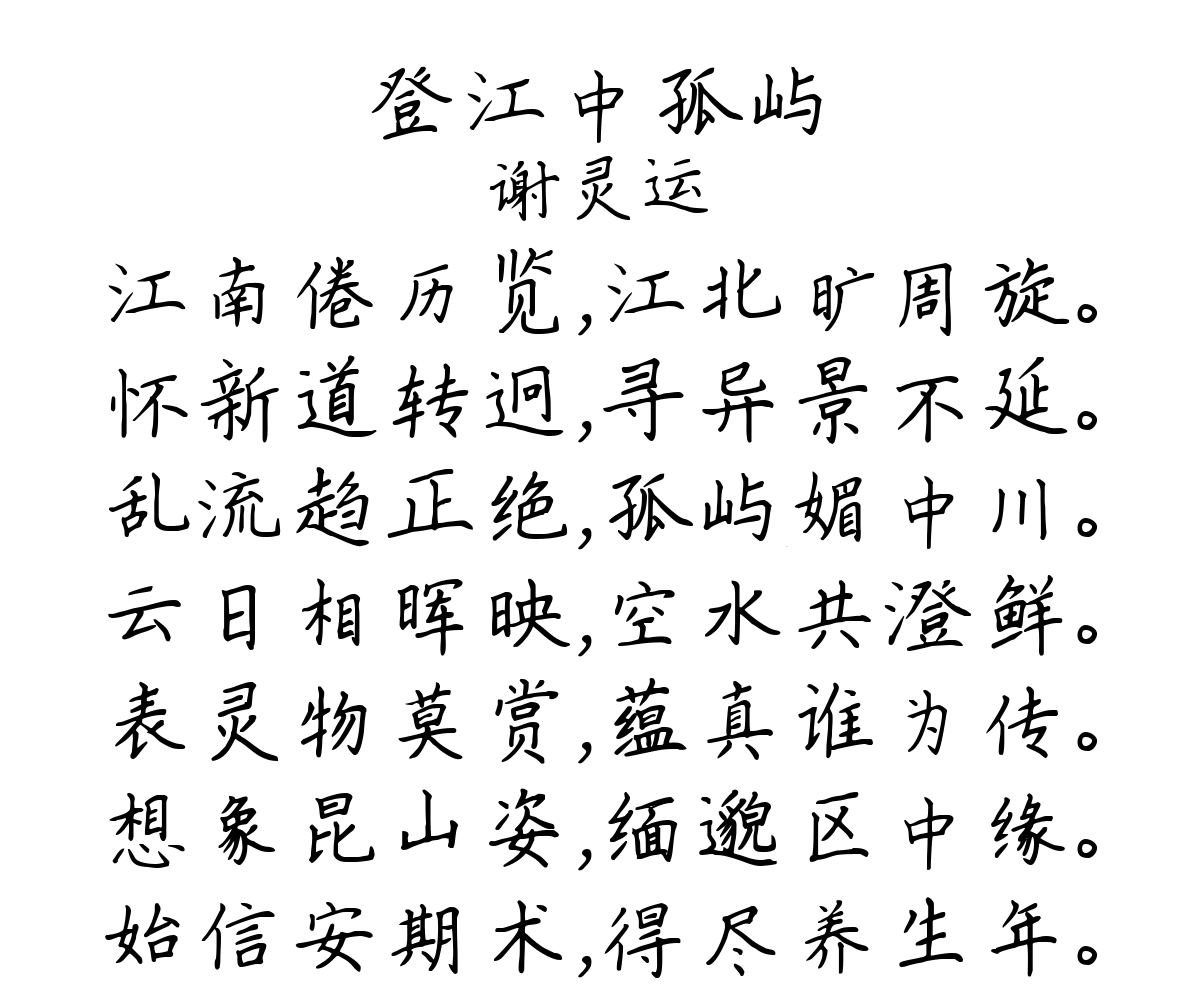 登江中孤屿
谢灵运
江南倦历览,江北旷周旋。
怀新道转迥,寻异景不延。
乱流趋正绝,孤屿媚中川。
云日相晖映,空水共澄鲜。
表灵物莫赏,蕴真谁为传。
想象昆山姿,缅邈区中缘。
始信安期术,得尽养生年。